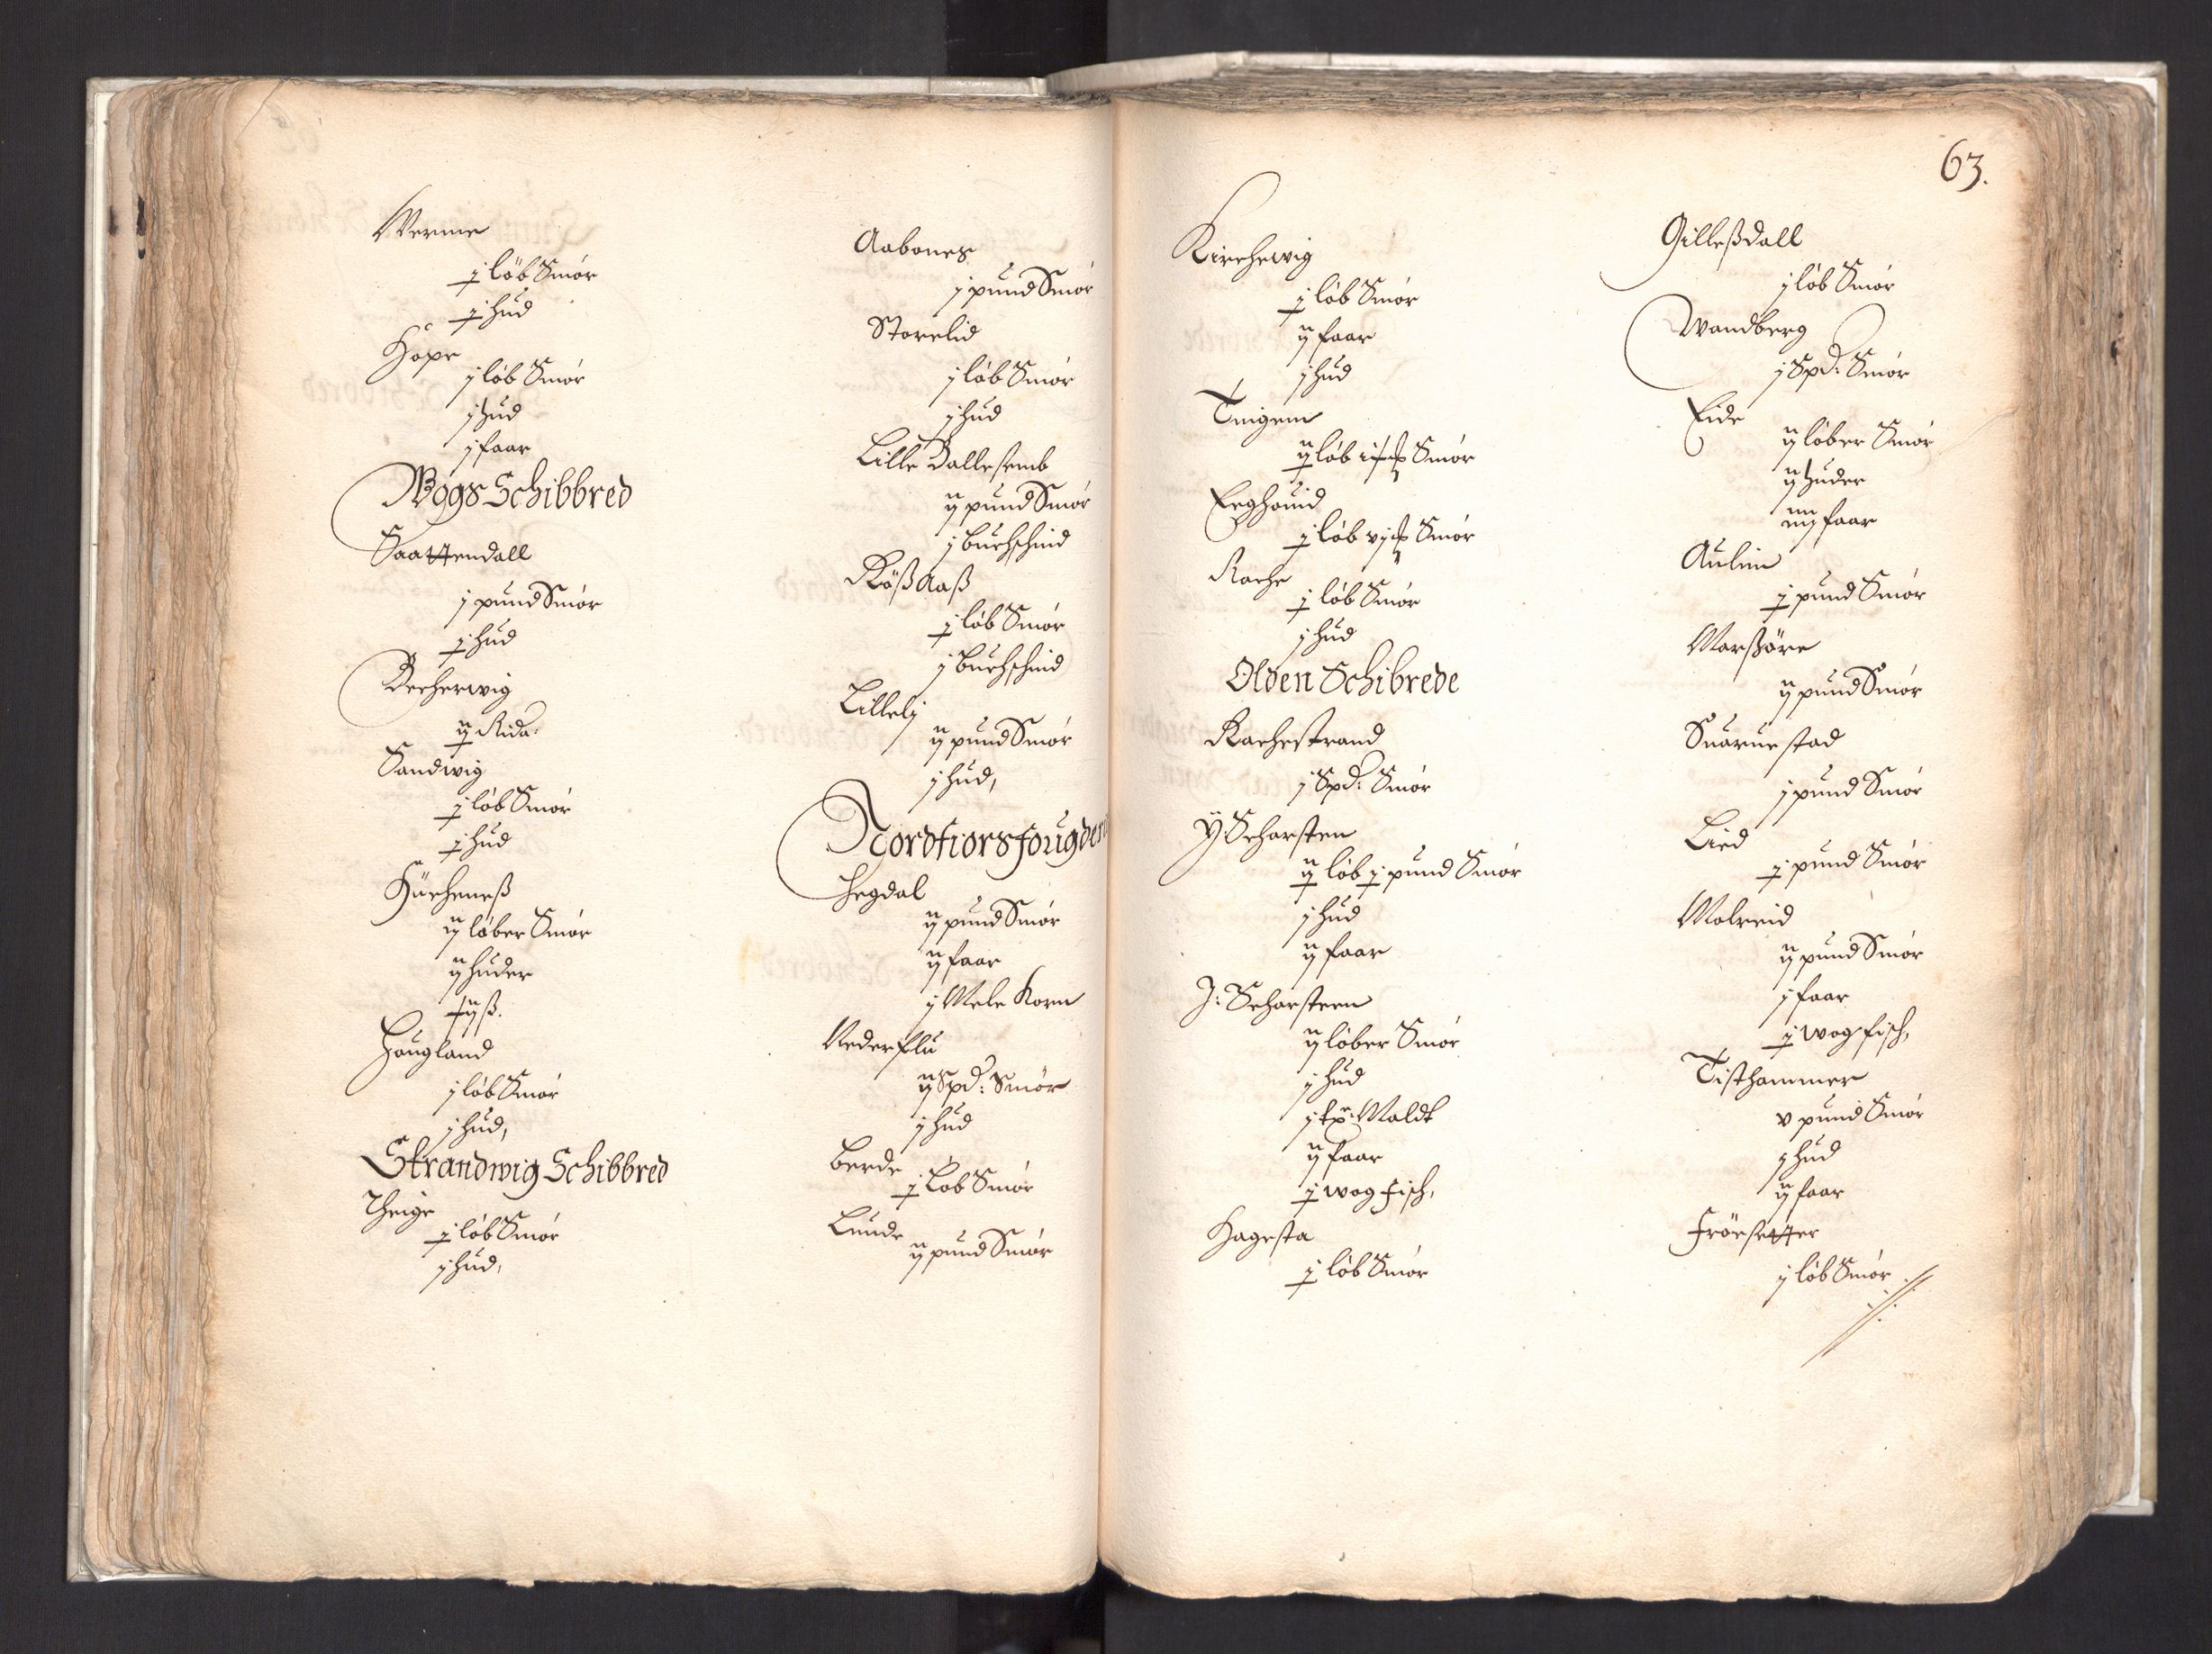 Werme
j löb Smör
j hud
Hope
j löb Smör
j hud
j faar
Wogs Schibbred
Saattendall
j pund Smör
j hud
Becherwig
ij Rida:
Sandwig
j löb Smör
j hud
Kürcheneß
ij löber Smör
ij huder
Hougland
j löb Smör
j hud,
Strandwig Schibbred
Theige
j löb Smör
j hud,
Aabones
j pund Smör
Storelid
j löb Smör
j hud
Lille Dallesemb
ij pund Smör
j buchschind
Röß Aaß
j löb Smör
j buchschind
Lillelj
ij pund Smör
j hud,
Nordfiors fougderi
Hegdal
ij pund Smör
ij faar
j Mele Korn
Nederflu
ij Spd: Smör
j hud
Berde
j Löb Smör
Lunde
ij pund Smör
63.
Kirchewig
j löb Smör
ij faar
j hud
Tuigem
ij löb Smör
Eeghouid
j löb Smör
Rache
j löb Smör
j hud
Olden Schibrede
Rachestrand
j Spd: Smör
Ÿ Scharsten
ij löb j pund Smör
j hud
ij faar
J: Scharsteen
ij löber Smör
j hud
j Maldt
ij faar
j wog fisch,
Hagesta
j löb Smör
Gilleßdall
j löb Smör
Wandberg
j Spd: Smör
Eide
ij löber Smör
ij huder
iiij faar
Aulim
j pund Smör
Marßöre
ij pund Smör
Suaruestad
j pund Smör
Lied
j pund Smör
Molreid
ij pund Smör
j faar
j wog fisch,
Tisthammer
v pund Smör
j hud
ij faar
Frörsetter
j löb Smör